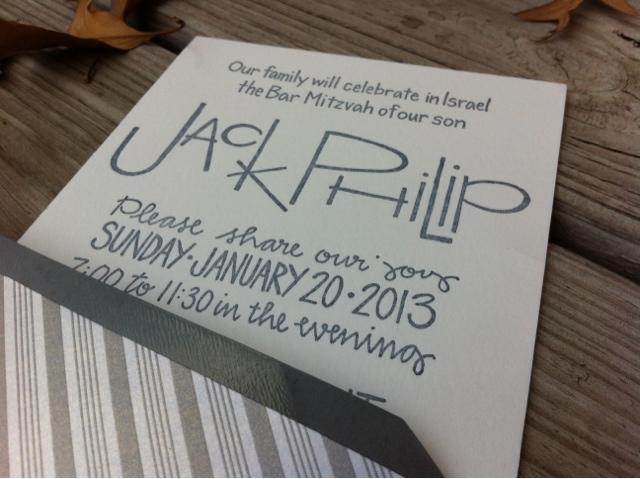 Our family will celebrate in Israel
the Bar Mitzvah of our son
JACK PHILIP
Please share our joy
SUNDAY·JANUARY 20·2013
7:00 to 11:30 in the evening